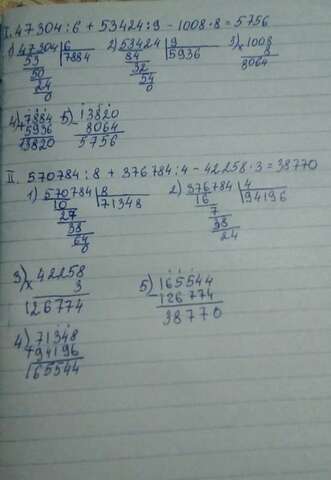 I. 47304:6 + 53424:9 - 1008·8 = 5756
1) 47304 | 6 2) 53424 | 9 3) × 1008
53 | 7884 84 | 5936 8
50 32 8064
24 54
0 0
4) + 7884 5) - 13820
5936 8064
13820 5756
II. 570784:8 + 376784:4 - 42258·3 = 38770
1) 570784 | 8 2) 376784 | 4
10 | 71348 16 | 94196
27 7
38 38
64 24
0
3) × 42258 5) - 165544
3 126774
126774 38770
4) + 71348
94196
165544